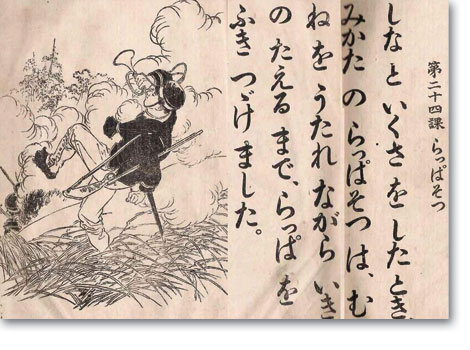 第二十四課 らっぱそつ
しな と いくさ を した とき、
みかた の らっぱそつ は、む
ね を うたれ ながら いき
の たえる まで、らっぱ を
ふき つゞけ ました。